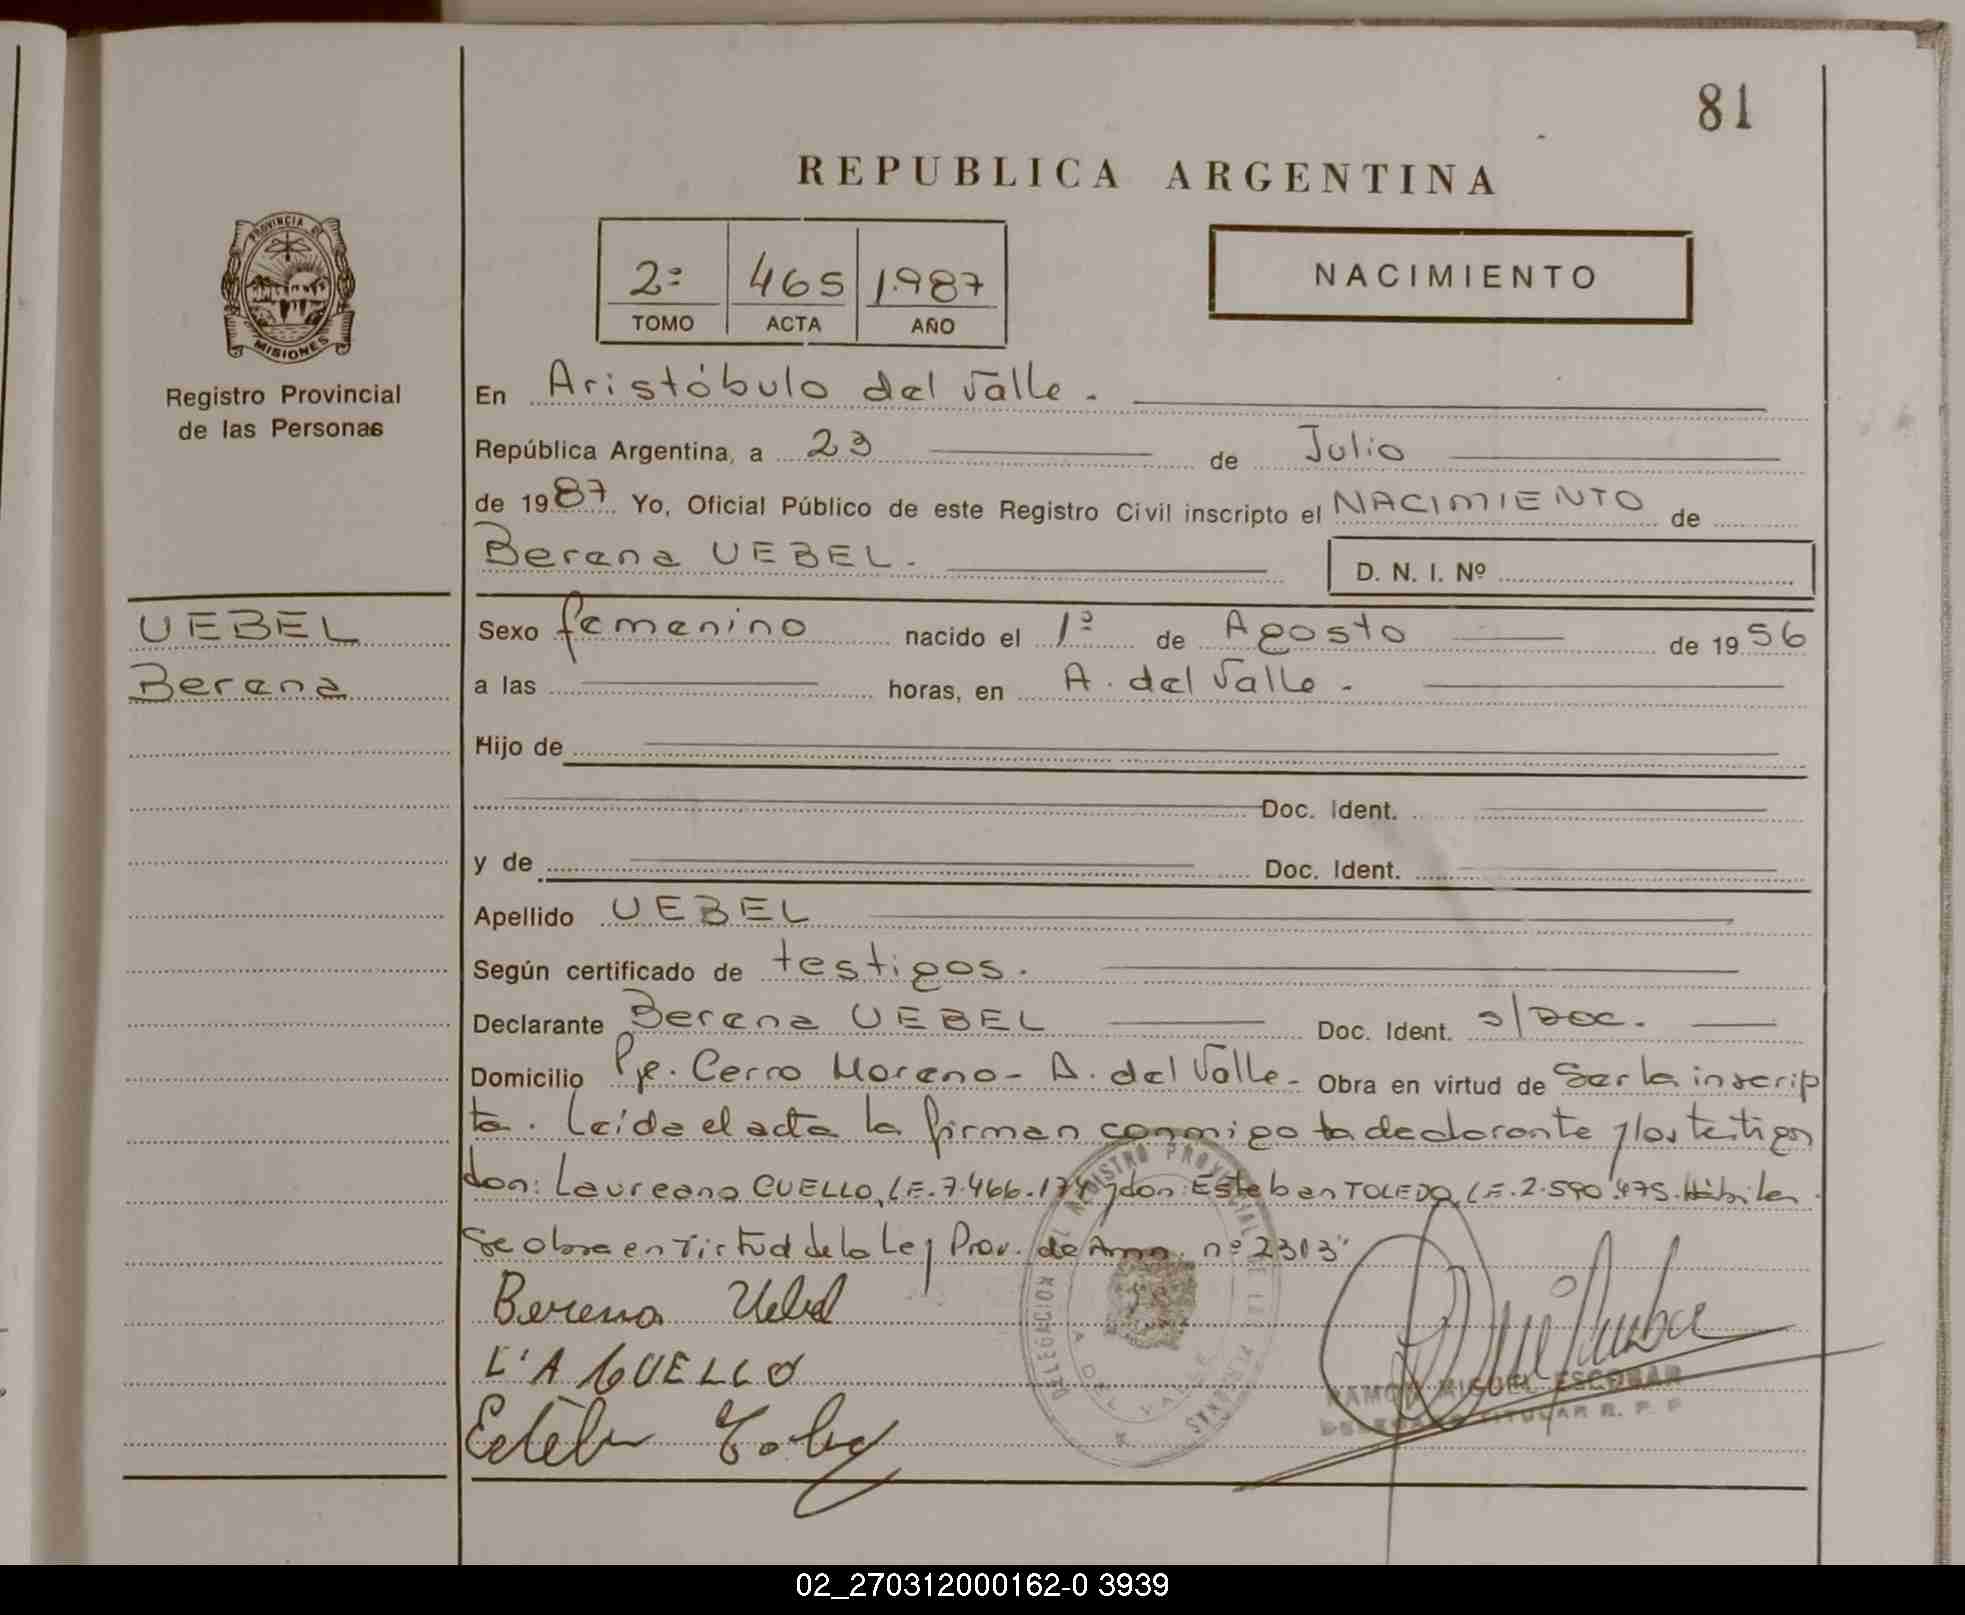 81
REPUBLICA ARGENTINA
PROVINCIA DE
MISIONES
2º 465 1.987
TOMO ACTA AÑO
NACIMIENTO
Registro Provincial
de las Personas
En Aristóbulo del Valle.
República Argentina, a 23 de Julio
de 1987 Yo, Oficial Público de este Registro Civil inscripto el NACIMIENTO de
Berena UEBEL.
D. N. I. Nº
UEBEL
Berena
Sexo femenino nacido el 1º de Agosto de 1956
a las horas, en A. del Valle.
Hijo de
Doc. Ident.
y de Doc. Ident.
Apellido UEBEL
Según certificado de testigos.
Declarante Berena UEBEL Doc. Ident. s/Doc.
Domicilio Pje. Cerro Moreno - A. del Valle - Obra en virtud de Ser la inscrip
ta. Leída el acta la firman conmigo la declarante y los testigos
don: Laureano CUELLO, LE. 7.466.174 y don: Esteban TOLEDO, LE. 2.590.475. Hábiles.
Se obra en virtud de la Ley Prov. de Amn. nº 2313"
Berena Uebel
L'A CUELLO
RAMON MIGUEL ESCOBAR
DELEGADO TITULAR R. P. P
DELEGACION DEL REGISTRO PROVINCIAL DE LAS PERSONAS
A DEL VALLE
02_270312000162-0 3939